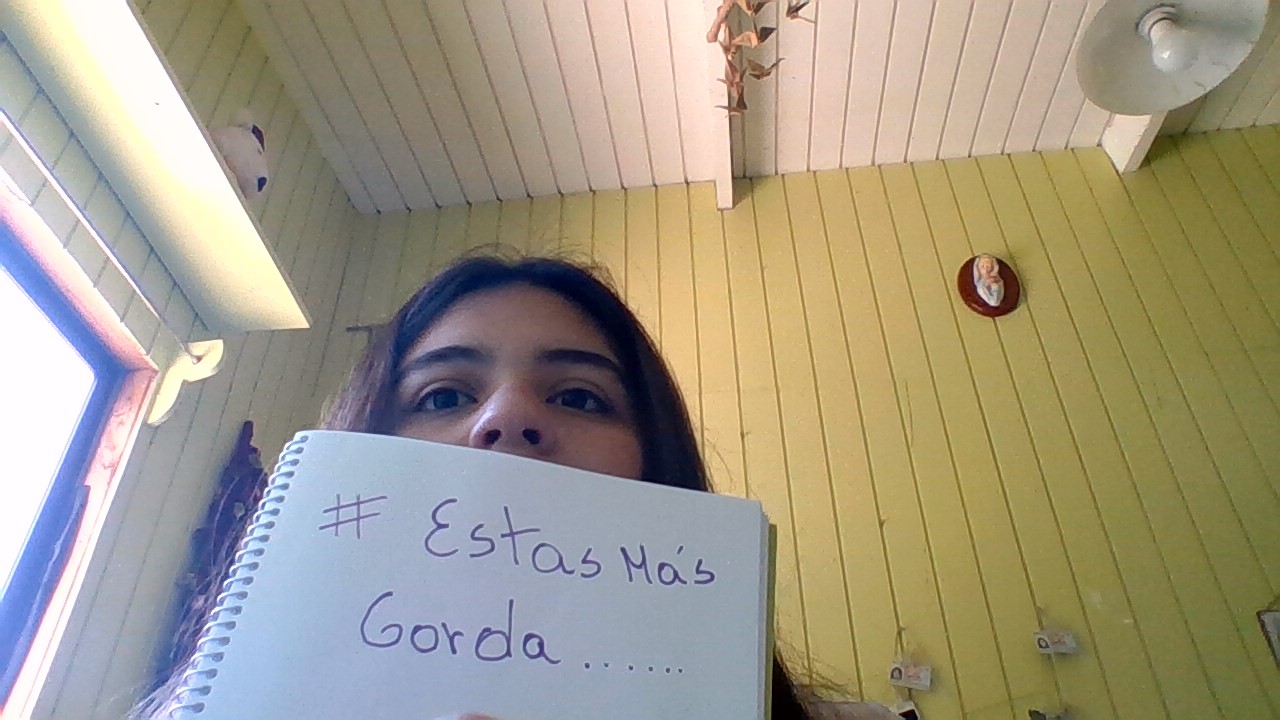 # Estas Más
Gorda......